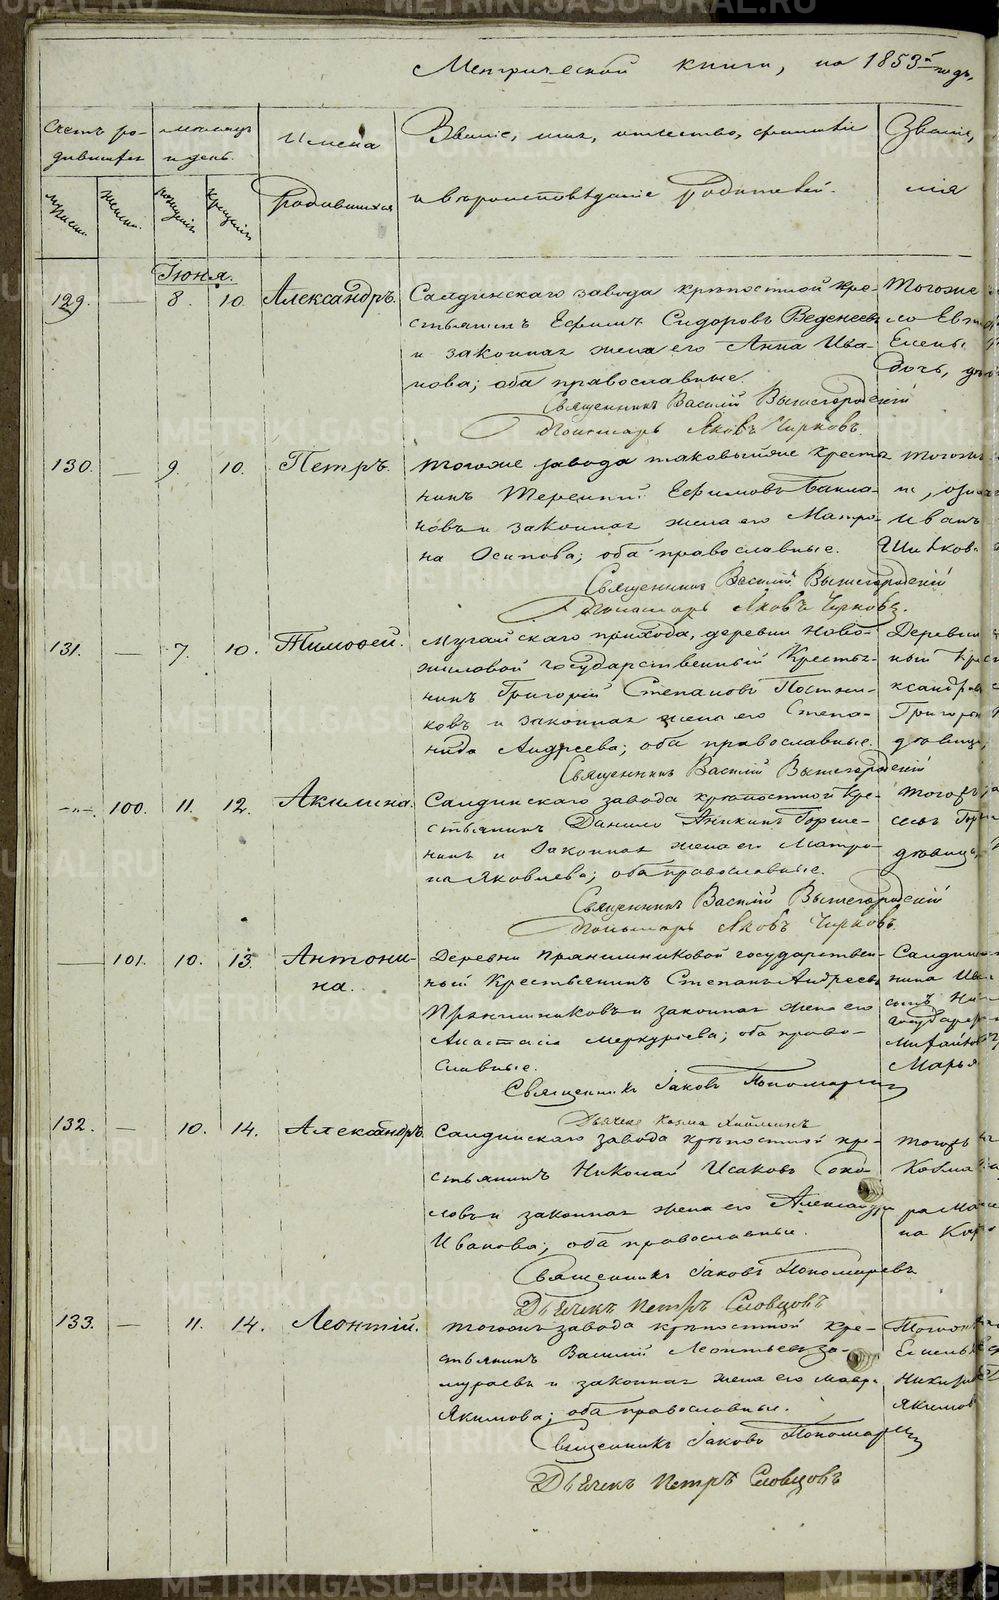 Метрической книги, на 1853й годъ,
Счетъ ро-
дившихся
мѣсяцъ
и день.
Имена
родившихся
Званіе, имя, отчество, фамилія
и вѣроисповѣданіе родителей.
Званіе,
мужеска.
женска.
рожденія
крещенія
Іюня.
129. — 8. 10. Александръ. Салдинскаго завода крѣпостной кре- Тогоже
стьянинъ Ефимъ Сидоровъ Веденеевъ
и законная жена его Анна Ива- Елены
нова; оба православные. дочь,
Священникъ Василій Вышегородскій
Пономарь Яковъ Чирковъ.
130. — 9. 10. Петръ. Тогоже завода таковыйже крестья-
нинъ Терентій Ефимовъ Бакла-
новъ и законная жена его Матро- Иванъ
на Осипова; оба православные.
Священникъ Василій Вышегородскій
Пономарь Яковъ Чирковъ.
131. — 7. 10. Тимофей. Мугайскаго прихода, деревни Ново- Деревни
жиловой государственный крестья-
нинъ Григорій Степановъ Постни-
ковъ и законная жена его Степа-
нида Андреева; оба православные. дѣвица,
Священникъ Василій Вышегородскій
100. 11. 12. Акилина. Салдинскаго завода крѣпостной кре-
стьянинъ Данило Аникинъ Горше-
нинъ и законная жена его Матро-
на Яковлева; оба православные. дѣвица,
Священникъ Василій Вышегородскій
Пономарь Яковъ Чирковъ.
— 101. 10. 13. Антони-
на.
Деревни Прянишниковой государствен-
ный крестьянинъ Степанъ Андреевъ
Прянишниковъ и законная жена его
Анастасія Меркурьева; оба право-
славные. Марья
Священникъ Іаковъ Пономаревъ
Дьячекъ Козма
132. — 10. 14. Александръ Салдинскаго завода крѣпостной кре-
стьянинъ Николай Исаковъ Соко- Козма
ловъ и законная жена его Александра
Иванова; оба православные.
Священникъ Іаковъ Пономаревъ
Дьячекъ Петръ Словцовъ
133. — 11. 14. Леонтій. Тогоже завода крѣпостной кре-
стьянинъ Василій Леонтьевъ За-
мураевъ и законная жена его Мавра
Якимова; оба православные. Якимов
Священникъ Іаковъ Пономаревъ
Дьячекъ Петръ Словцовъ
METRIKI.GASO-URAL.RU